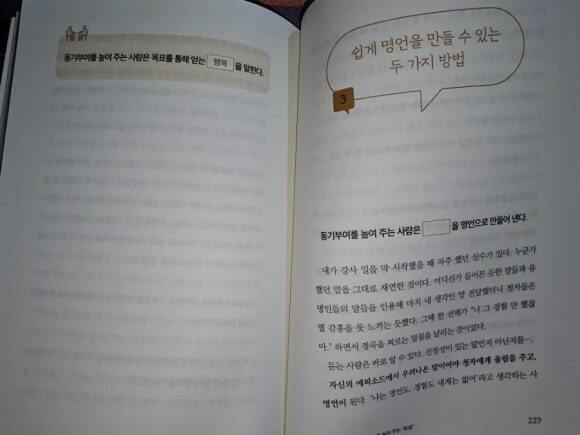 동기부여를 높여 주는 사람은 목표를 통해 얻는 행복 을 말한다.
쉽게 명언을 만들 수 있는
두 가지 방법
3
동기부여를 높여 주는 사람은 을 명언으로 만들어 낸다.
내가 강사 일을 막 시작했을 때 자주 했던 실수가 있다. 누군가
했던 말을 그대로 재연한 것이다. 어디선가 들어본 듯한 말들과 유
명인들의 말들을 인용해 마치 내 생각인 양 전달했더니 청자들은
별 감흥을 못 느끼는 듯했다. 그때 한 선배가 "너 그 경험 안 했잖
아." 하면서 정곡을 찌르는 일침을 날리는 것이었다.
듣는 사람은 바로 알 수 있다. 진정성이 있는 말인지 아닌지를….
자신의 에피소드에서 우러나온 말이어야 청자에게 울림을 주고,
명언이 된다. '나는 명언도, 경험도 내게는 없어'라고 생각하는 사
229